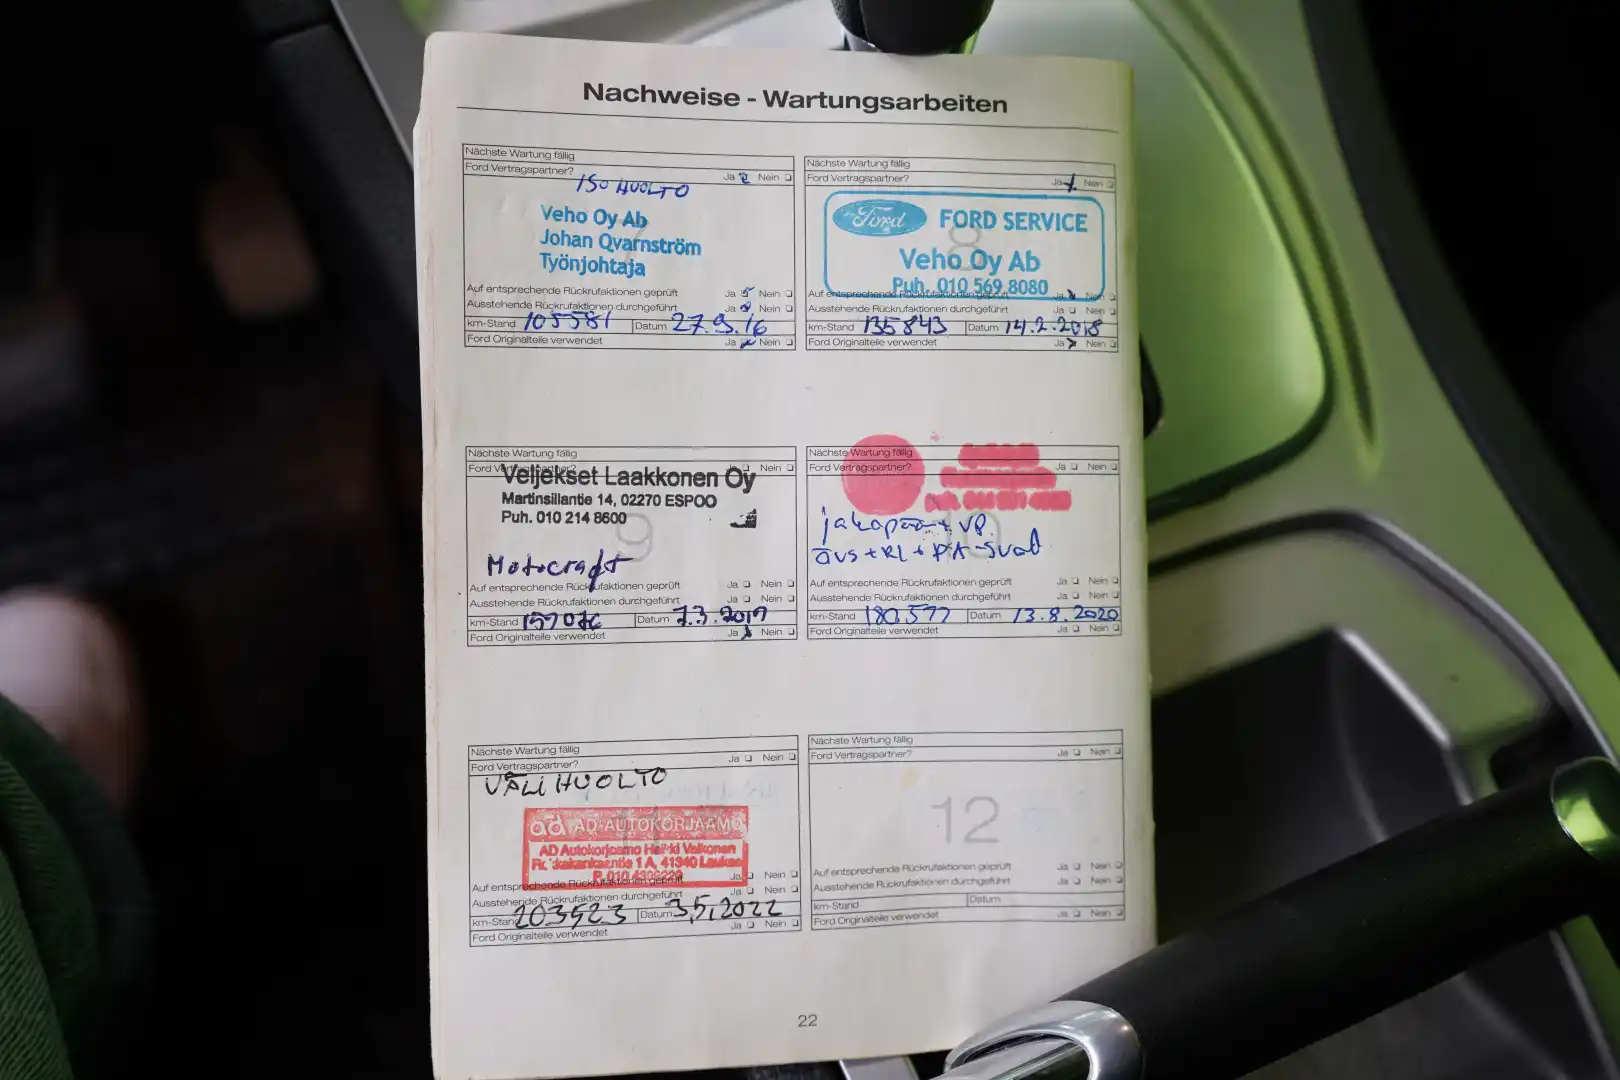 Nachweise - Wartungsarbeiten
Nächste Wartung fällig
Ford Vertragspartner? Ja Nein
ISO HUOLTO
Veho Oy Ab
Johan Qvarnström
Työnjohtaja
Auf entsprechende Rückrufaktionen geprüft Ja Nein
Ausstehende Rückrufaktionen durchgeführt Ja Nein
km-Stand 105581 Datum 27.9.16
Ford Originalteile verwendet Ja Nein
Nächste Wartung fällig
Ford Vertragspartner? Ja Nein
8
Ford FORD SERVICE
Veho Oy Ab
Puh. 010 569 8080
Auf entsprechende Rückrufaktionen geprüft Ja Nein
Ausstehende Rückrufaktionen durchgeführt Ja Nein
km-Stand 135843 Datum 14.2.2018
Ford Originalteile verwendet Ja Nein
Nächste Wartung fällig
Ford Vertragspartner? Nein
Veljekset Laakkonen Oy
Martinsillantie 14, 02270 ESPOO
Puh. 010 214 8600
9
Motorcraft
Auf entsprechende Rückrufaktionen geprüft Ja Nein
Ausstehende Rückrufaktionen durchgeführt Ja Nein
km-Stand 157076 Datum 7.3.2019
Ford Originalteile verwendet Ja Nein
Nächste Wartung fällig
Ford Vertragspartner? Ja Nein
10
jakopää + VP
Auf entsprechende Rückrufaktionen geprüft Ja Nein
Ausstehende Rückrufaktionen durchgeführt Ja Nein
km-Stand 180577 Datum 13.8.2020
Ford Originalteile verwendet Ja Nein
Nächste Wartung fällig
Ford Vertragspartner? Ja Nein
VÄLIHUOLTO
ad AD-AUTOKORJAAMO
AD Autokorjaamo Heikki Valkonen
1 A, 41340 Laukaa
Auf entsprechende Rückrufaktionen geprüft Ja Nein
Ausstehende Rückrufaktionen durchgeführt Ja Nein
km-Stand 203523 Datum 3.5.2022
Ford Originalteile verwendet Ja Nein
Nächste Wartung fällig
Ford Vertragspartner? Ja Nein
12
Auf entsprechende Rückrufaktionen geprüft Ja Nein
Ausstehende Rückrufaktionen durchgeführt Ja Nein
km-Stand Datum
Ford Originalteile verwendet Ja Nein
22